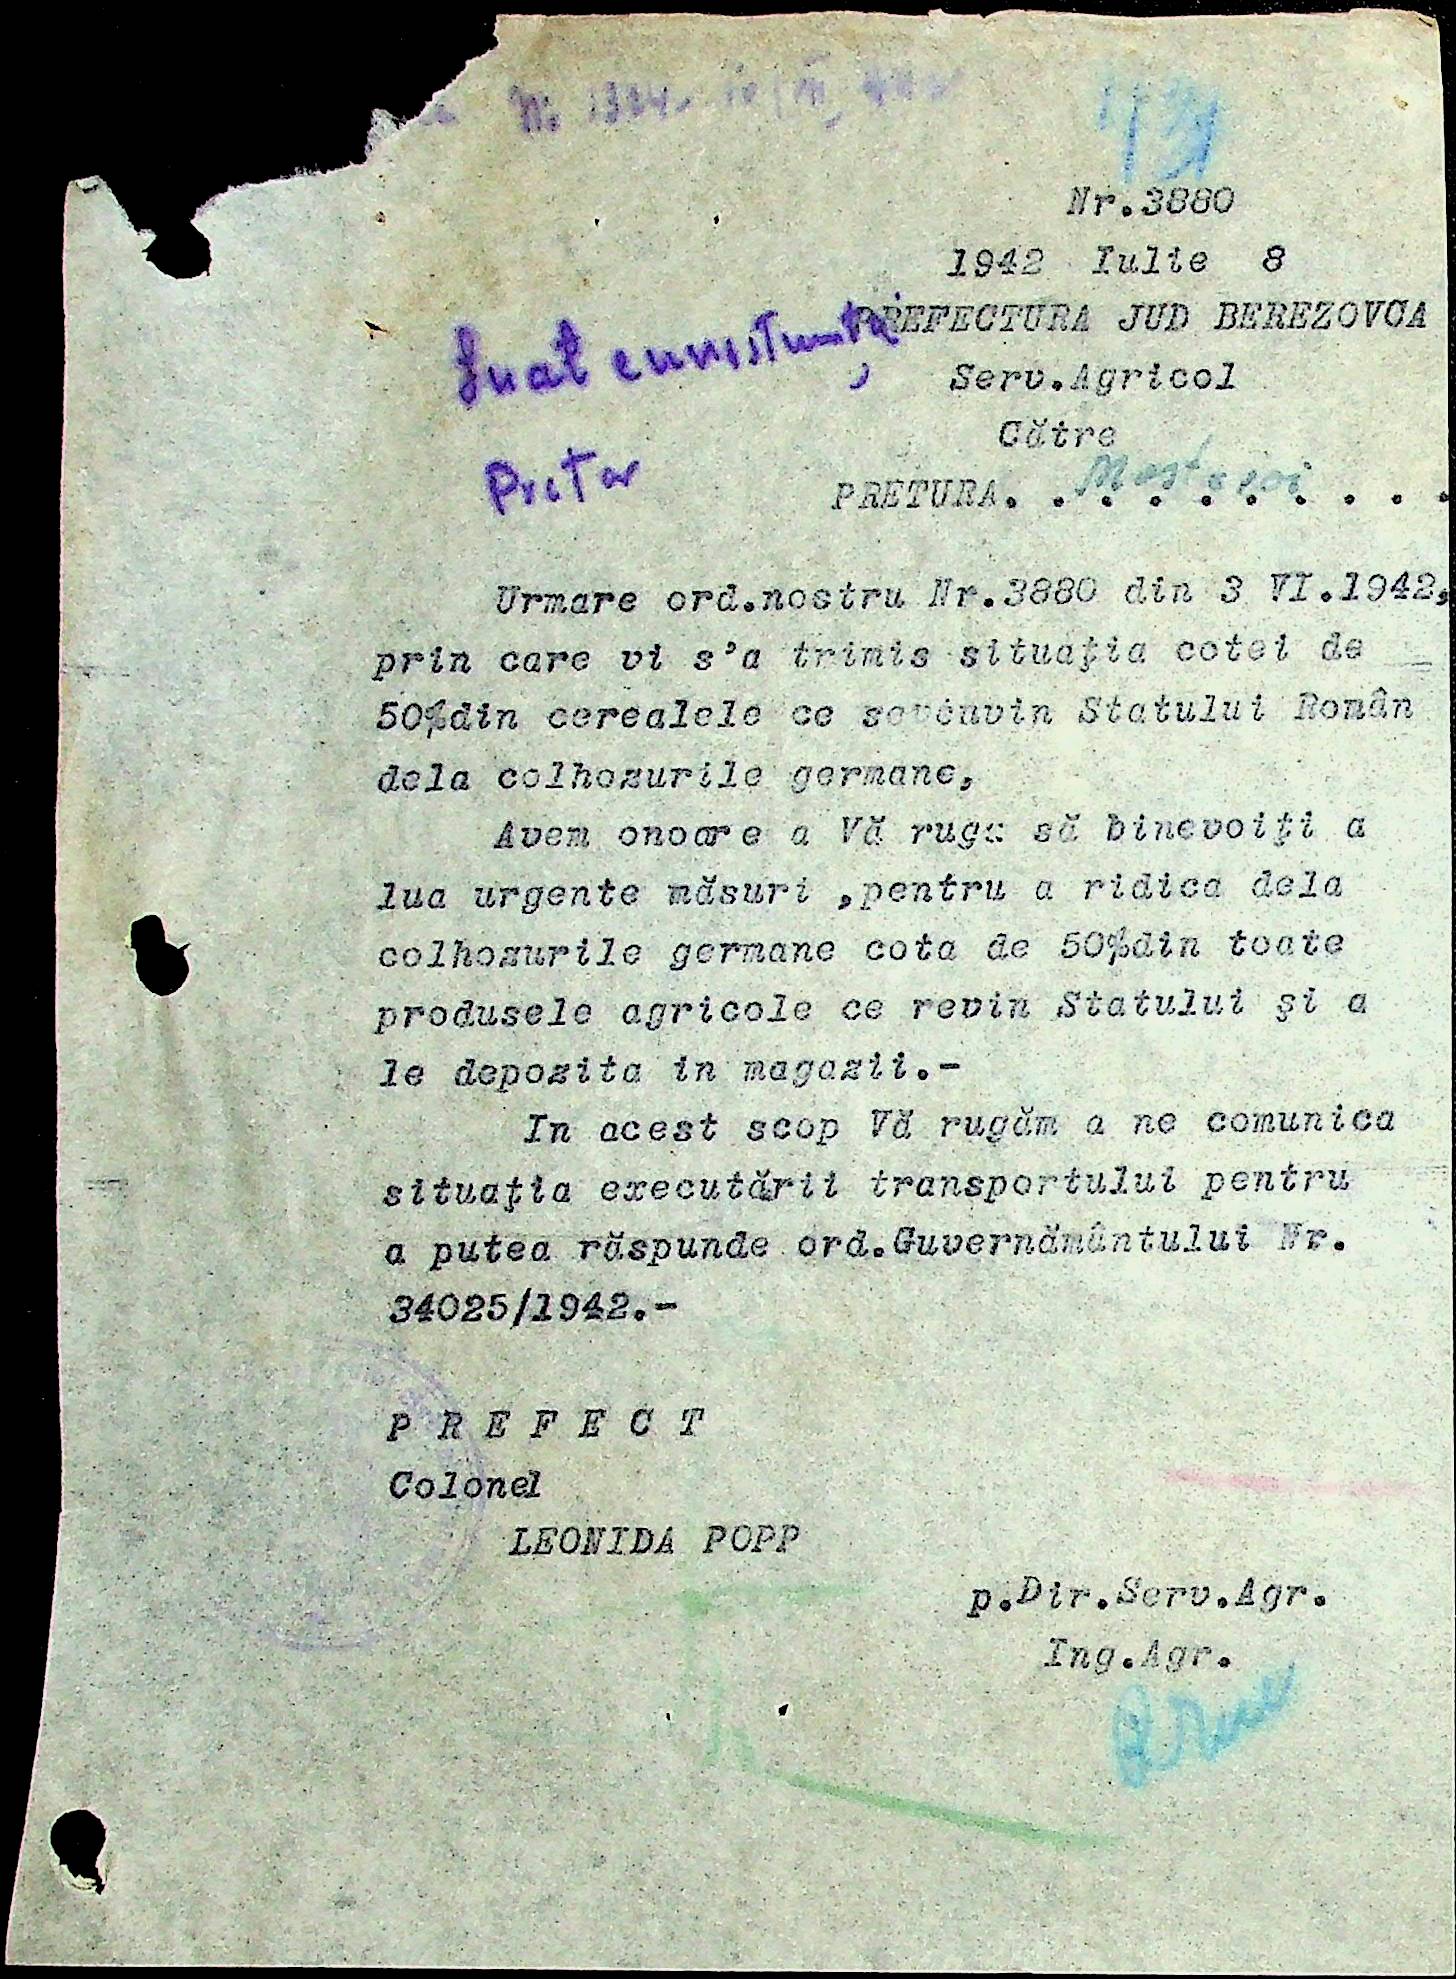 Nr.3880
1942 Iulie 8
PREFECTURA JUD BEREZOVCA
Luat cunoștință,
Serv.Agricol
Cătrе
Pretor
PRETURA. . . . . . . . . .
Urmare ord.nostru Nr.3880 din 3 VI.1942,
prin care vi s'a trimis situaţia cotei de
50%din cerealele ce se Statului Român
dela colhozurile germane,
Avem onoare a Vă ruga să binevoiţi a
lua urgente măsuri ,pentru a ridica dela
colhozurile germane cota de 50%din toate
produsele agricole ce revin Statului şi a
le depozita in magazii.-
In acest scop Vă rugăm a ne comunica
situaţia executării transportului pentru
a putea răspunde ord.Guvernământului Nr.
34025/1942.-
P R E F E C T
Colonel
LEONIDA POPP
p.Dir.Serv.Agr.
Ing.Agr.